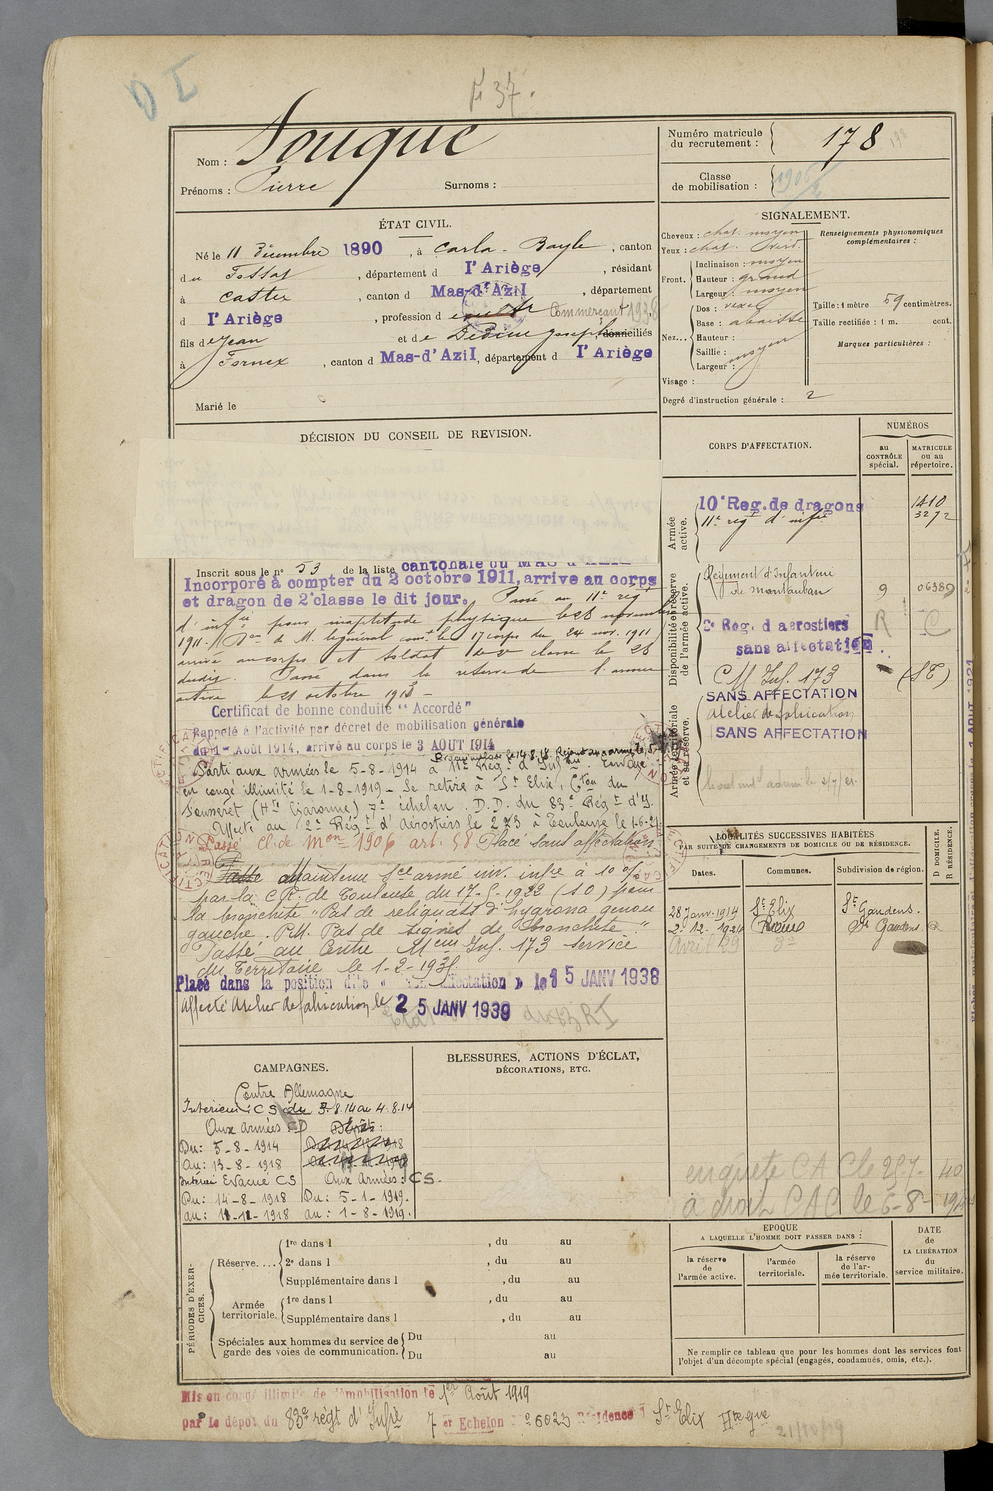 D I
F 37.
Nom : Souque
Prénoms : Pierre Surnoms :
Numéro matricule du recrutement : 178
Classe de mobilisation : 1906
ÉTAT CIVIL.
Né le 11 Décembre 1890, à Carla-Bayle, canton
du Fossat, département d l'Ariège, résidant
à Castex, canton d Mas-d'Azil, département
d l'Ariège, profession d Commerçant 1938
fils de Jean et de Dedieu Joséphine domiciliés
à Fornex, canton d Mas-d'Azil, département d l'Ariège
Marié le
SIGNALEMENT.
Cheveux : chat. moyen
Yeux : chat. vert
Front. Inclinaison : moyen
Hauteur : grand
Largeur : moyen
Nez... Dos : vexe
Base : abaissée
Hauteur :
Saillie : moyen
Largeur :
Visage :
Degré d'instruction générale : 2
Renseignements physionomiques complémentaires :
Taille : 1 mètre 59 centimètres.
Taille rectifiée : 1 m. cent.
Marques particulières :
DÉCISION DU CONSEIL DE REVISION.
Inscrit sous le n° 53 de la liste cantonale du
Incorporé à compter du 2 octobre 1911, arrive au corps
et dragon de 2e classe le dit jour. Passé au 11e reg
d'infie pour inaptitude physique le 28 novembre
1911. Don de M. le général comt le 17 corps du 24 nov. 1911
arrivé au corps et soldat de 2e classe le 28
dudit. Passé dans la réserve de l'armée
active le 31 octobre 1913 -
Certificat de bonne conduite "Accordé"
Rappelé à l'activité par décret de mobilisation générale
du 1er Août 1914, arrivé au corps le 3 AOUT 1914
Parti aux armées le 5-8-1914 à 11e Rég. d'Infie. Envoyé
en congé illimité le 1-8-1919 - Se retire à St Elix, Cton du
Fousseret (Hte Garonne) 7e échelon. D.D. du 83e Régt d'I.
Affecté au 2e Régt d'aérostiers le à Toulouse le 1-6-21
Passé cl. de mon 1906 art. 58 Placé sans affectation
Maintenu Sce armé inv. infre à 10 %
par la C.R. de Toulouse du 17-5-1922 (10) pour
la bronchite "Pas de reliquats d'hygroma genou
gauche. P.M. Pas de signes de bronchite."
Passé au Centre Mem Inf. 173 Service
du Territoire le 1-2-193
Placé dans la position dite « sans affectation » le 15 JANV 1938
Affecté Atelier de fabrication le 25 JANV 1939
CORPS D'AFFECTATION.
NUMÉROS
au CONTRÔLE spécial.
MATRICULE ou au répertoire.
Armée active.
10e Reg. de dragons 1410
11e regt d'infie 3272
Disponibilité et réserve de l'armée active.
Régiment d'Infanterie de Montauban 9 06389
2e Reg. d aerostiers R C
sans affectation
CM Inf. 173 (ST)
SANS AFFECTATION
Armée territoriale et sa réserve.
Atelier de fabrication
SANS AFFECTATION
LOCALITÉS SUCCESSIVES HABITÉES
PAR SUITE DE CHANGEMENTS DE DOMICILE OU DE RÉSIDENCE.
Dates. Communes. Subdivision de région. D DOMICILE. R RÉSIDENCE.
28 Janv. 1914 St Elix St Gaudens.
2-12-1924 St Gaudens R
Avril 29
enquête CAC le 25-7-40
à droit CAC le 6-8-
CAMPAGNES.
Contre Allemagne
Intérieur : CS du 3.8.14 au 4.8.14
Aux armées :
Du : 5-8-1914
au : 13-8-1918
Intérieur Evacué CS Aux Armées : CS.
Du : 14-8-1918 Du : 5-1-1919.
au : 11-12-1918 au : 1-8-1919.
BLESSURES, ACTIONS D'ÉCLAT,
DÉCORATIONS, ETC.
PÉRIODES D'EXERCICES.
Réserve.... 1re dans l , du au
2e dans l , du au
Supplémentaire dans l , du au
Armée territoriale. 1re dans l , du au
Supplémentaire dans l , du au
Spéciales aux hommes du service de garde des voies de communication. Du au
Du au
EPOQUE
A LAQUELLE L'HOMME DOIT PASSER DANS :
la réserve de l'armée active.
l'armée territoriale.
la réserve de l'armée territoriale.
DATE de LA LIBÉRATION du service militaire.
Ne remplir ce tableau que pour les hommes dont les services font
l'objet d'un décompte spécial (engagés, condamnés, omis, etc.).
Mis en congé illimité de démobilisation le 1er Août 1919
par le dépôt du 83e régt d'Infie 7 er Echelon N° 6023 Résidence St Elix Hte Gne
21/10/19